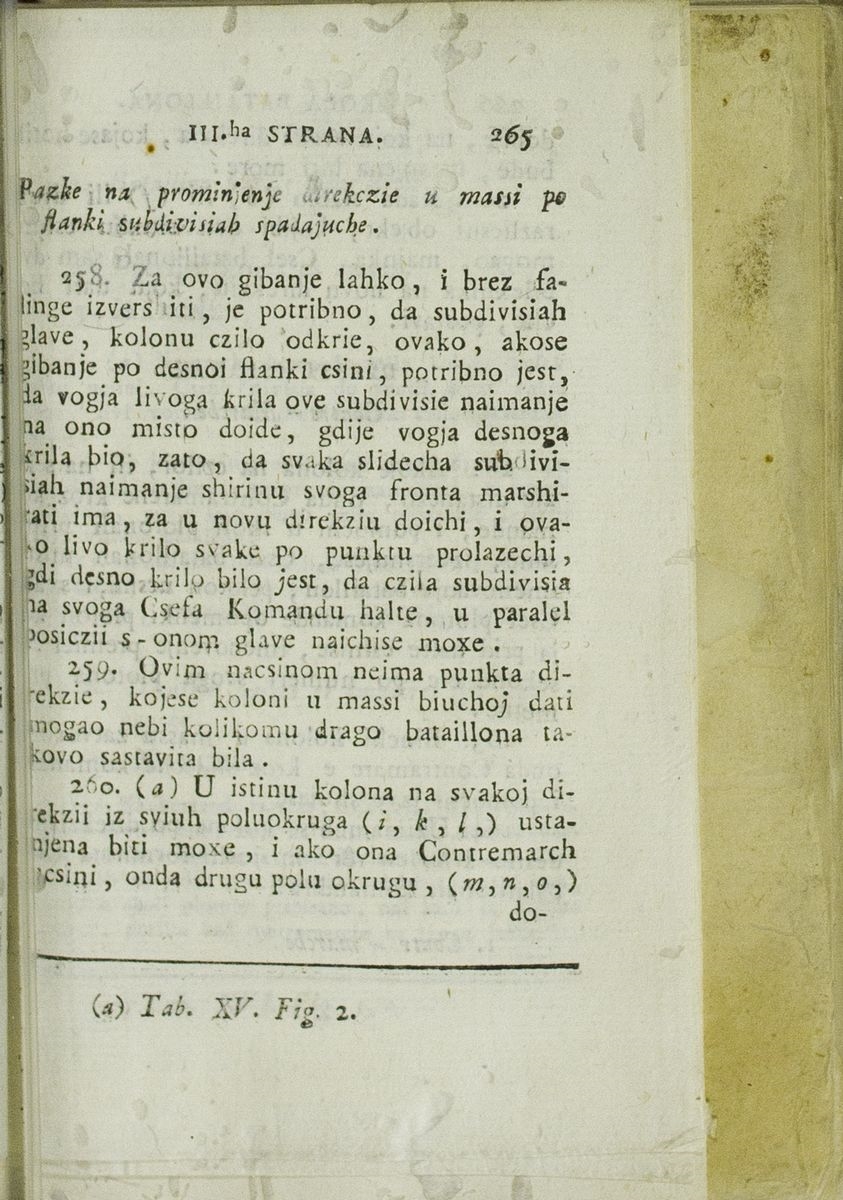 III.ha STRANA. 265
Pazke na prominjenje direkczie u massi po
flanki subdivisiah spadajuche.
258. Za ovo gibanje lahko, i brez fa-
linge izversiti, je potribno, da subdivisiah
glave, kolonu czilo odkrie, ovako, akose
gibanje po desnoi flanki csini, potribno jest,
da vogja livoga krila ove subdivisie naimanje
na ono misto doide, gdije vogja desnoga
krila bio, zato, da svaka slidecha subdivi-
siah naimanje shirinu svoga fronta marshi-
rati ima, za u novu direkziu doichi, i ova-
ko livo krilo svake po punktu prolazechi,
gdi desno krilo bilo jest, da czila subdivisia
na svoga Csefa Komandu halte, u paralel
posiczii s-onom glave naichise moxe.
259. Ovim nacsinom neima punkta di-
rekzie, kojese koloni u massi biuchoj dati
mogao nebi kolikomu drago bataillona ta-
kovo sastavita bila.
260. (a) U istinu kolona na svakoj di-
rekzii iz sviuh poluokruga (i, k, l,) usta-
njena biti moxe, i ako ona Contremarch
ucsini, onda drugu polu okrugu, (m, n, o,)
do-
(a) Tab. XV. Fig. 2.